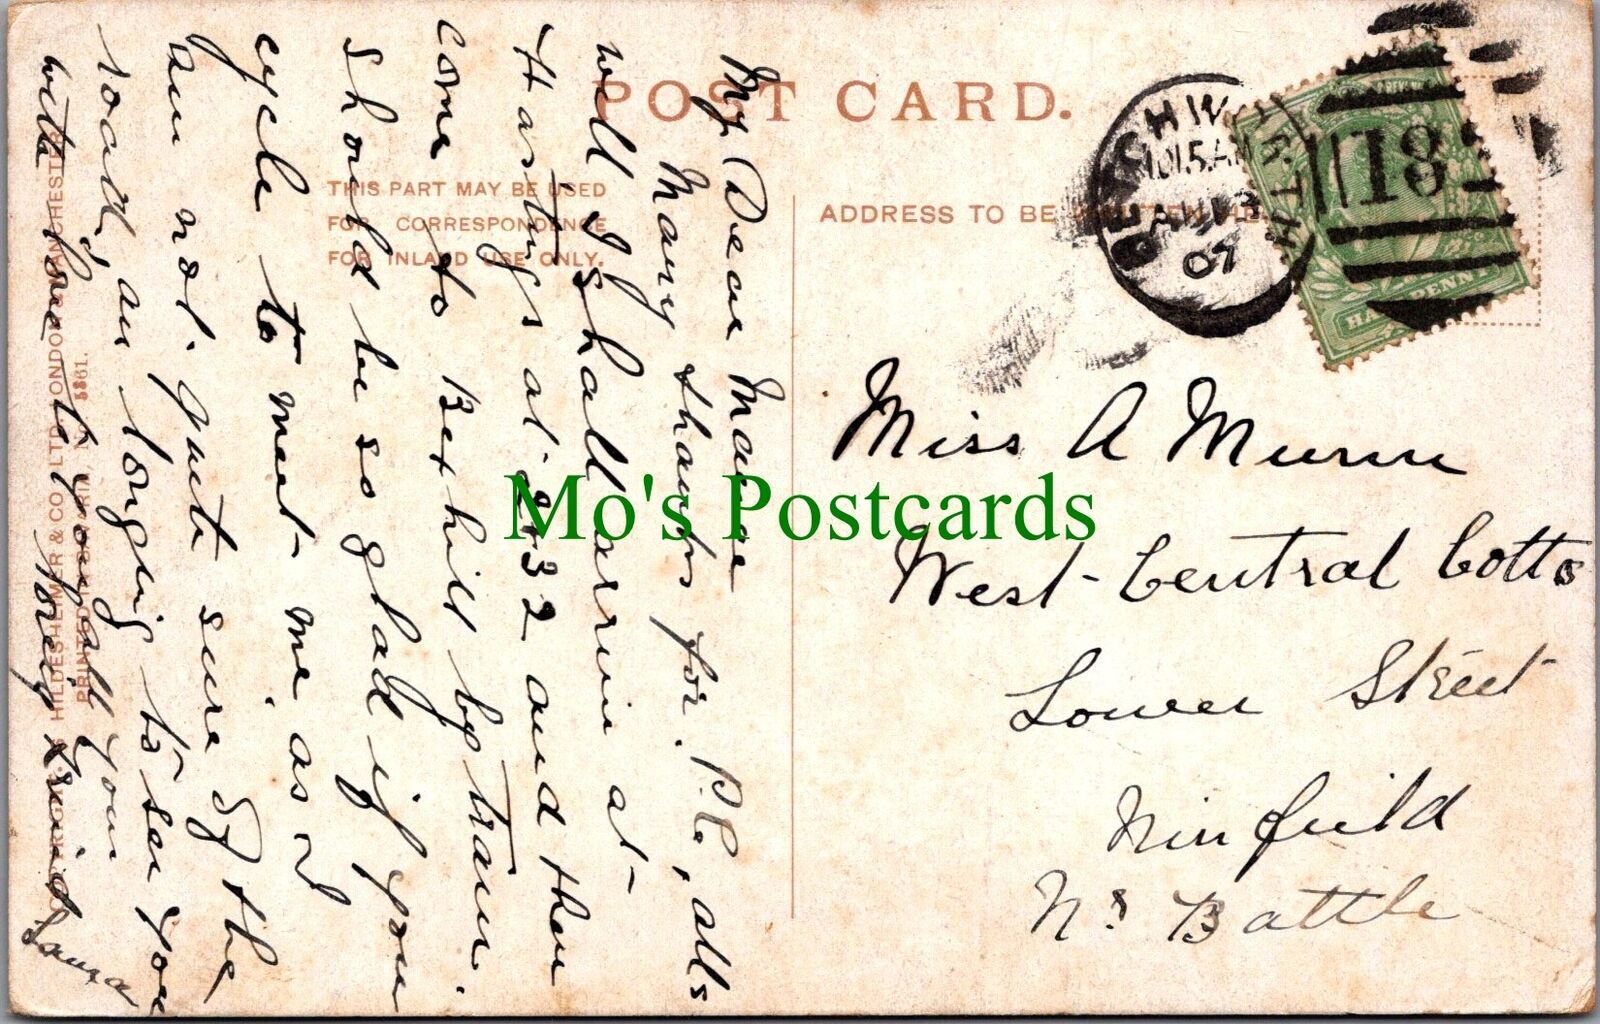 POST CARD.
THIS PART MAY BE USED
FOR CORRESPONDENCE
FOR INLAND USE ONLY.
ADDRESS TO BE WRITTEN HE
10 15 AM
AU 13
07
81
HALFPENNY
My Dear
Many thanks for P.C., alls
well I shall arrive at
Hastings at 2-32 and then
come to Bexhill by train.
should be so glad if you
cycle to meet me as I
am not quite sure of the
road, am longing to see you
with love to you all your
loving friend
Laura
Miss A Munn
West-Central Cotts
Lower Street
Ninfield
Nr Battle
HILDESHEIMER & CO. LTD. LONDON & MANCHESTER
5861.
Mo's Postcards